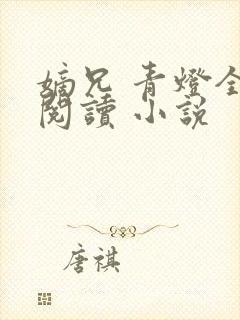 嫡兄 青燈全
閱讀 小說
唐祺